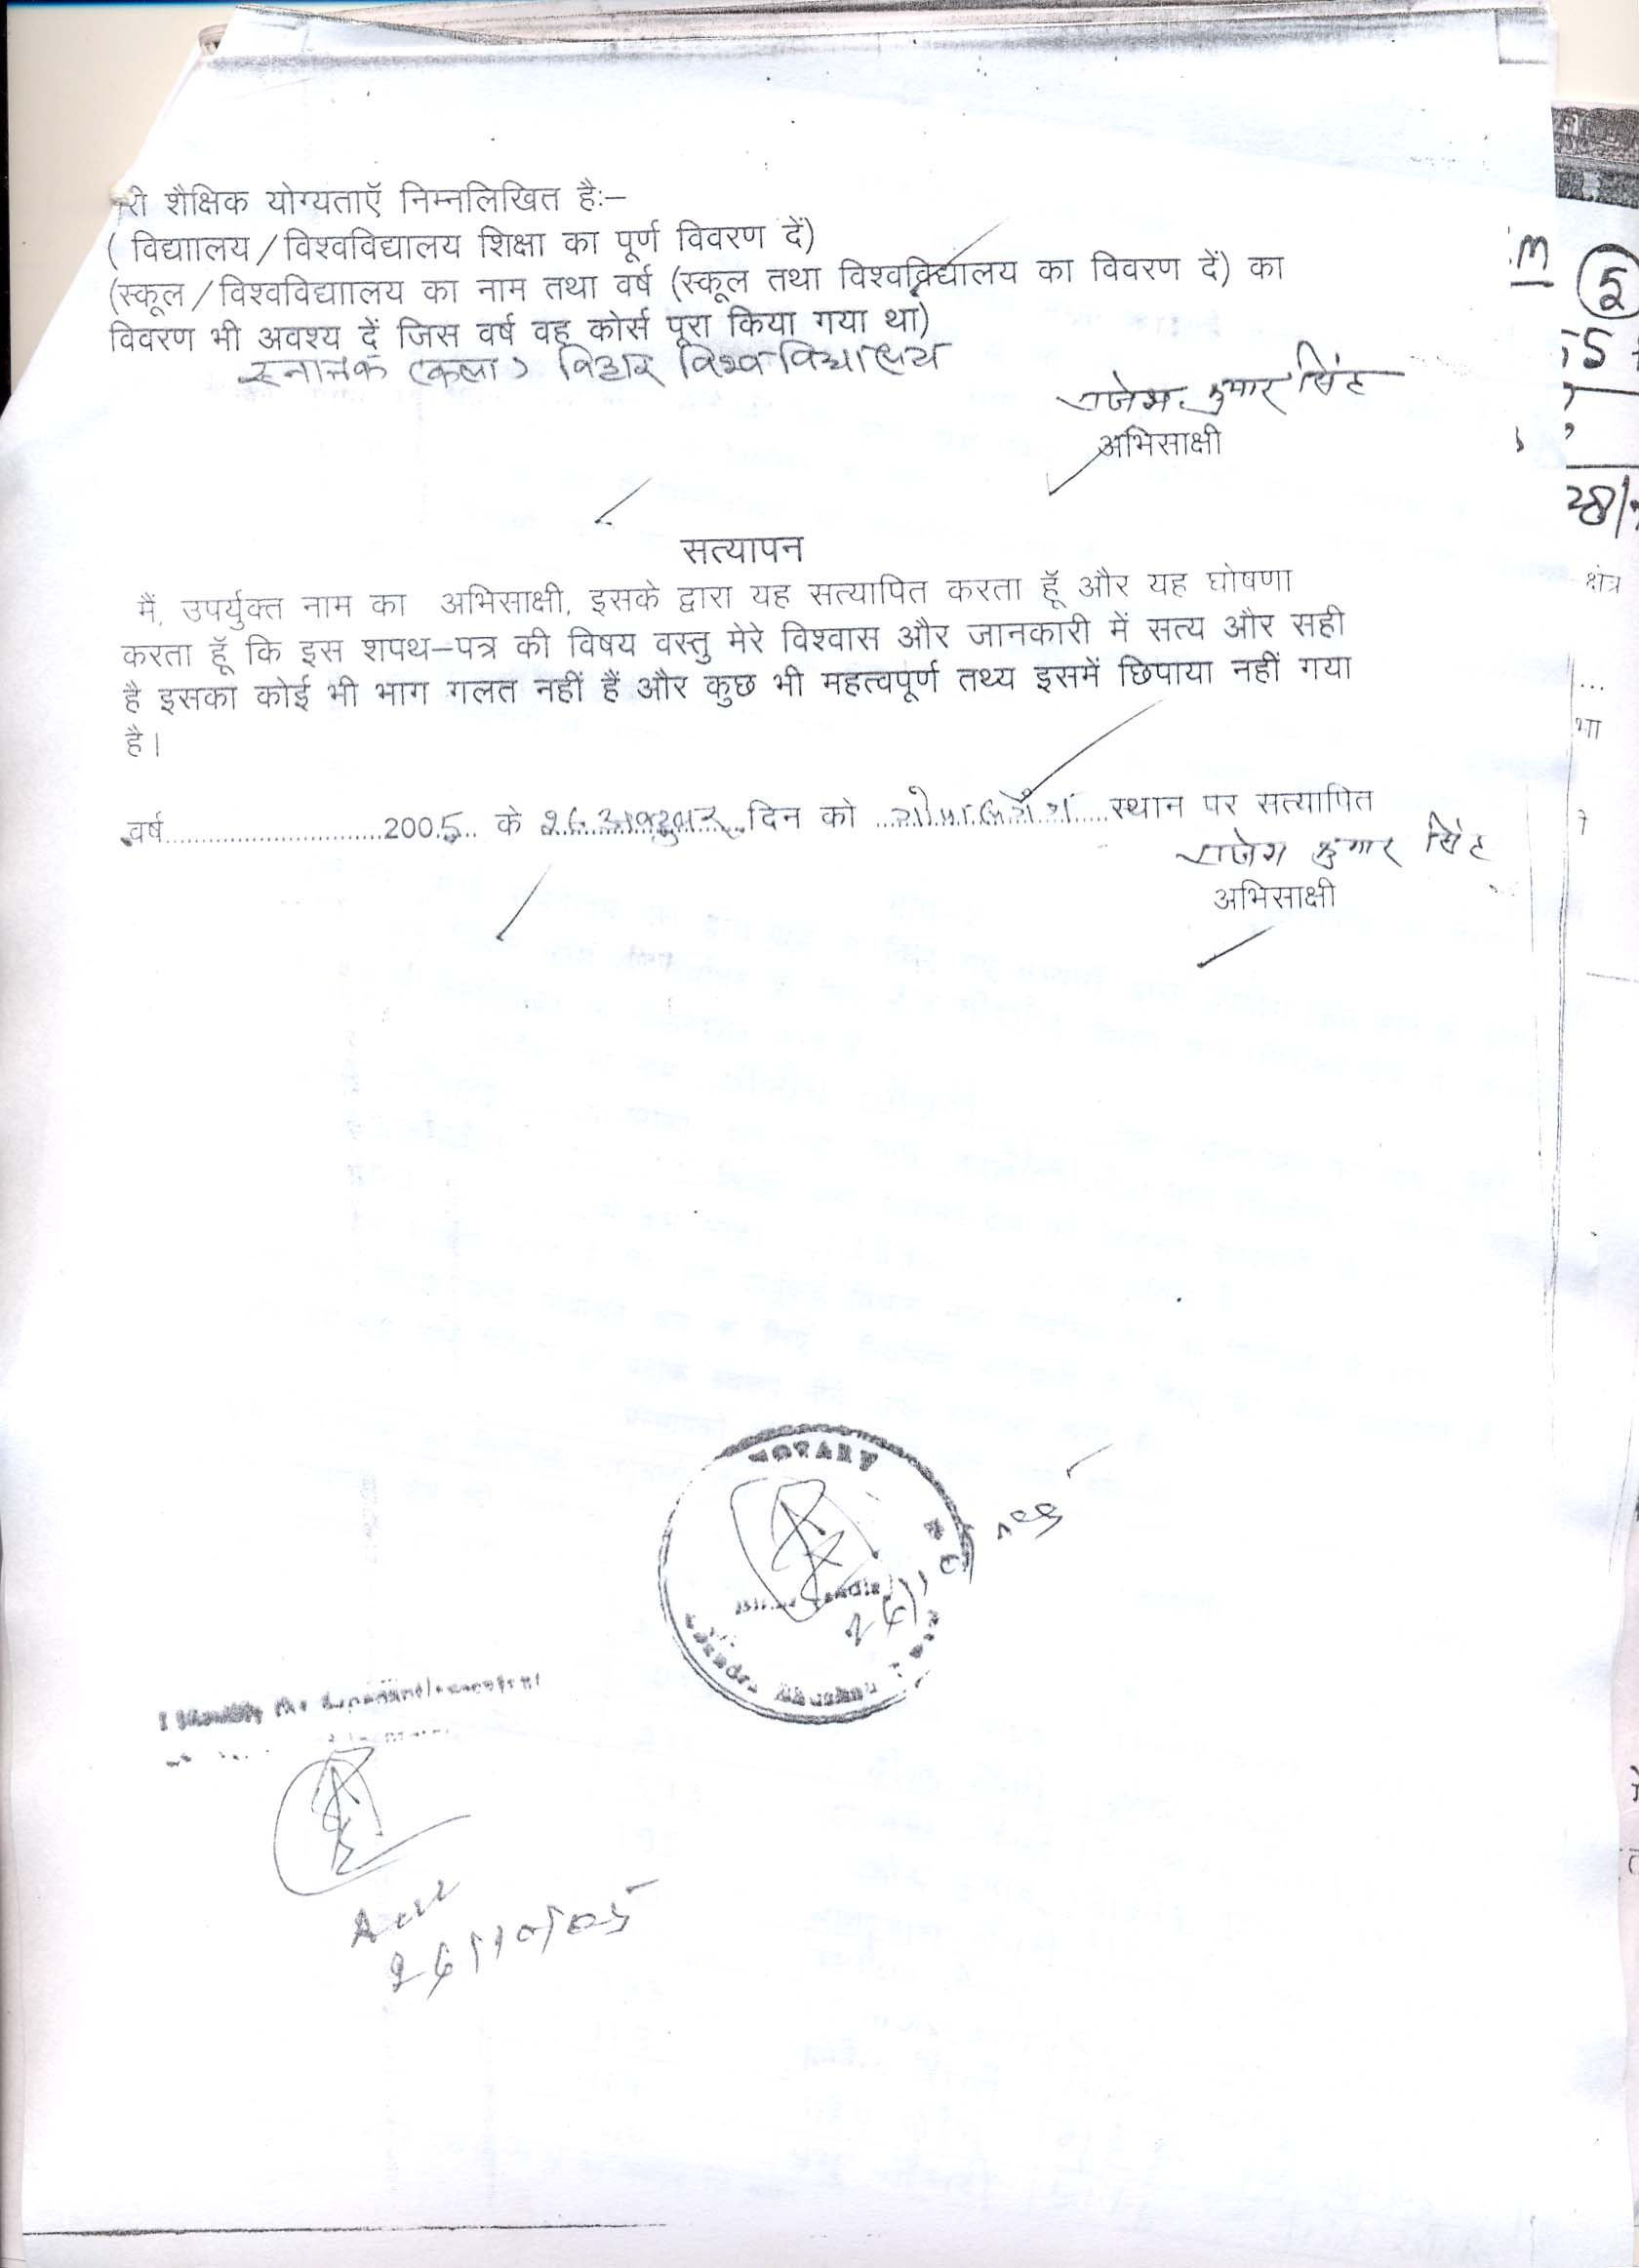 री शैक्षिक योग्यताएँ निम्नलिखित है:–
( विद्याालय/विश्वविद्यालय शिक्षा का पूर्ण विवरण दें)
(स्कूल/विश्वविद्याालय का नाम तथा वर्ष (स्कूल तथा विश्वविद्यिालय का विवरण दें) का
विवरण भी अवश्य दें जिस वर्ष वह कोर्स पूरा किया गया था)
स्नातक (कला) बिहार विश्वविद्यालय
राजेश कुमार सिंह
अभिसाक्षी
सत्यापन
मैं, उपर्युक्त नाम का अभिसाक्षी, इसके द्वारा यह सत्यापित करता हूँ और यह घोषणा
करता हूँ कि इस शपथ–पत्र की विषय वस्तु मेरे विश्वास और जानकारी में सत्य और सही
है इसका कोई भी भाग गलत नहीं हैं और कुछ भी महत्वपूर्ण तथ्य इसमें छिपाया नहीं गया
है।
वर्ष............................2005.. के 26 अक्टुबर दिन को ...गोपालगंज.....स्थान पर सत्यापित
राजेश कुमार सिंह
अभिसाक्षी
NOTARY
I Identify the deponent/executant
26/10/05
5
28/
क्षेत्र